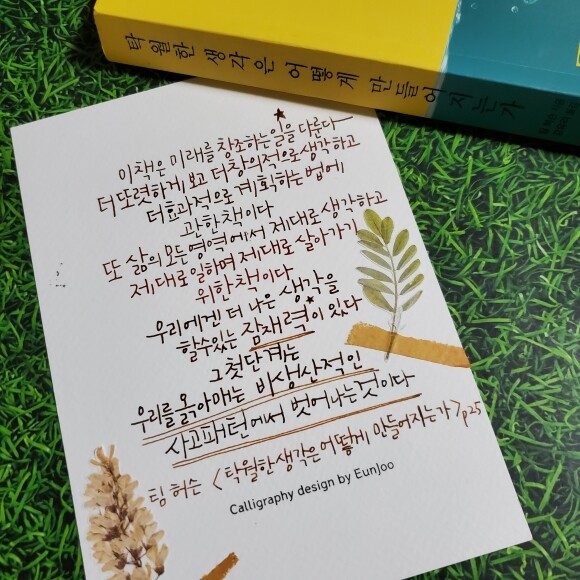 탁월한 생각은 어떻게 만들어지는가
이책은 미래를 창조하는일을 다룬다
더또렷하게 보고 더창의적으로 생각하고
더효과적으로 계획하는 법에
관한책이다
또 삶의 모든영역에서 제대로 생각하고
제대로 일하며 제대로 살아가기
위한책이다
우리에겐 더 나은 생각을
할수있는 잠재력이 있다
그첫단계는
우리를 옭아매는 비생산적인
사고패턴에서 벗어나는것이다
팀 허슨 <탁월한생각은어떻게 만들어지는가>p25
Calligraphy design by EunJoo